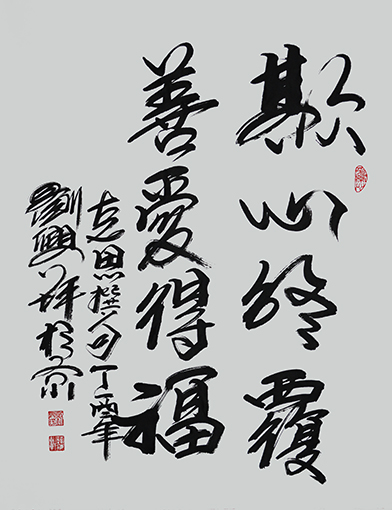 欺心終覆
善愛得福
思撰句丁酉年
劉興祥於京